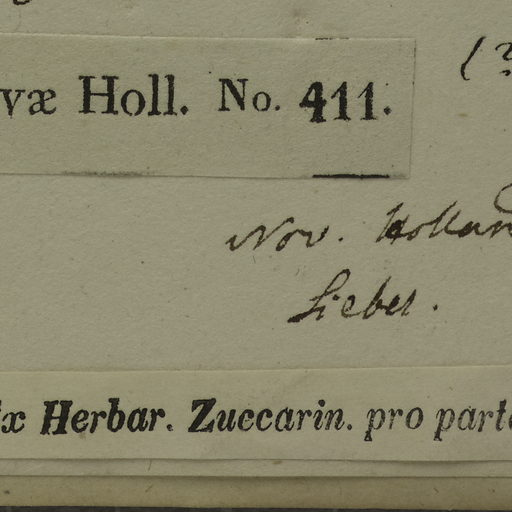 væ Holl. No. 411.
Nov. Hollan
Sieber.
x Herbar. Zuccarin. pro parte